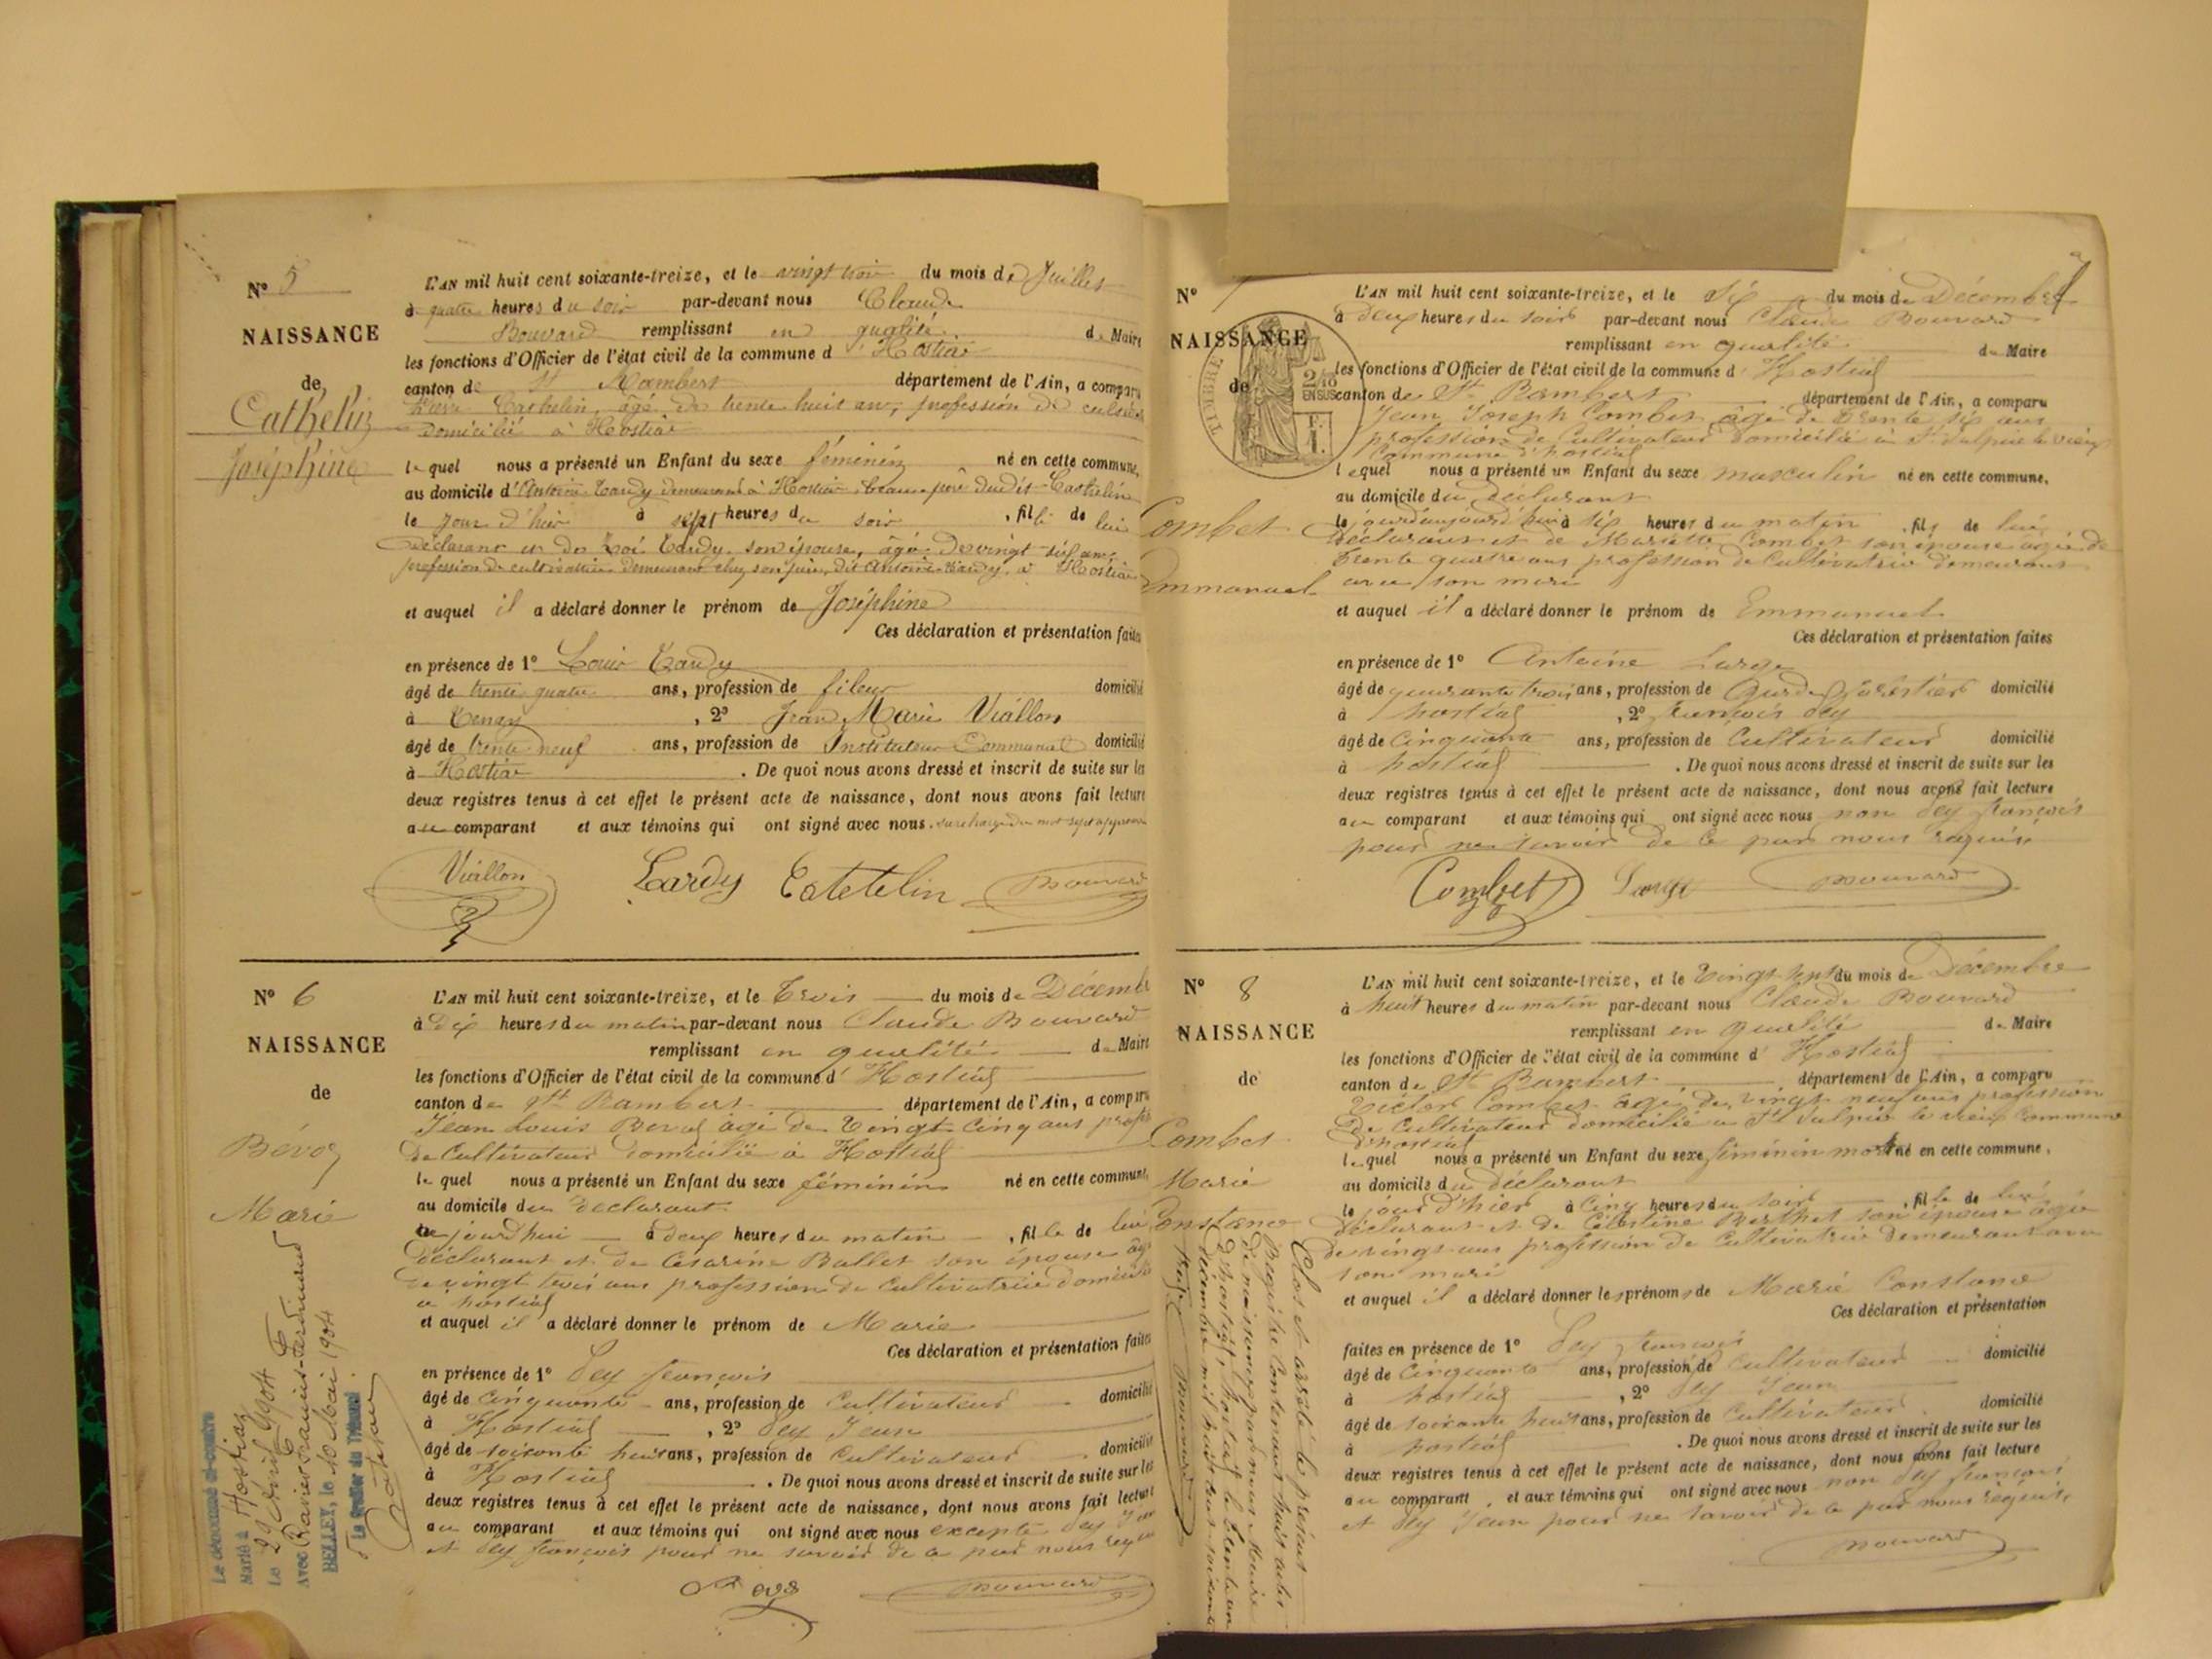 N° 5
NAISSANCE
de
Cathelin
Joséphine
L'AN mil huit cent soixante-treize, et le vingt trois du mois de Juillet
à quatre heures du soir par-devant nous Claude
Bouvard remplissant en qualité de Maire
les fonctions d'Officier de l'état civil de la commune d'Hostiaz
canton de St Rambert département de l'Ain, a comparu
Cathelin, âgé de trente huit ans, profession de
domicilié à Hostiaz
lequel nous a présenté un Enfant du sexe féminin né en cette commune,
au domicile d'Antoine Tardy demeurant à Hostiaz beau-père dudit Cathelin
le jour d'hier à sept heures du soir, fille de lui
déclarant et de Tardy son épouse, âgée de vingt ans,
profession de cultivatrice demeurant chez son père, dit Antoine Tardy, à Hostiaz
et auquel il a déclaré donner le prénom de Joséphine
Ces déclaration et présentation faites
en présence de 1° Louis Tardy
âgé de trente quatre ans, profession de fileur domicilié
à Tenay, 2° Jean Marie Viallon
âgé de trente neuf ans, profession de Instituteur Communal domicilié
à Hostiaz. De quoi nous avons dressé et inscrit de suite sur les
deux registres tenus à cet effet le présent acte de naissance, dont nous avons fait lecture
au comparant et aux témoins qui ont signé avec nous. surcharge du mot sept approuvée
Viallon Tardy Catetelin Bouvard
N° 6
NAISSANCE
de
Bévoz
Marie
L'AN mil huit cent soixante-treize, et le trois du mois de Décembre
à dix heures du matin par-devant nous Claude Bouvard
remplissant en qualité de Maire
les fonctions d'Officier de l'état civil de la commune d'Hostiaz
canton de St Rambert département de l'Ain, a comparu
Jean Louis Bevoz âgé de Vingt cinq ans profession
de Cultivateur domicilié à Hostiaz
lequel nous a présenté un Enfant du sexe féminin né en cette commune,
au domicile du déclarant
ce jourd'hui à deux heures du matin, fille de lui
déclarant et de Césarine Ballet son épouse âgée
de vingt trois ans profession de Cultivatrice domiciliée
à hostiaz
et auquel il a déclaré donner le prénom de Marie
Ces déclaration et présentation faites
en présence de 1° Dey françois
âgé de Cinquante ans, profession de Cultivateur domicilié
à Hostiaz, 2° Dey Jean
âgé de soixante huit ans, profession de Cultivateur domicilié
à Hostiaz. De quoi nous avons dressé et inscrit de suite sur les
deux registres tenus à cet effet le présent acte de naissance, dont nous avons fait lecture
au comparant et aux témoins qui ont signé avec nous excepté Dey Jean
et Dey françois pour ne savoir de ce par nous requis
Bouvard
Le dénommé ci-contre
Marié à Hostiaz
Le 29 Avril 1904
Avec Ravier Francois-Ferdinand
BELLEY, le 10 Mai 1904
Le Greffier du Tribunal
N° 7
NAISSANCE
de
Combet
Emmanuel
TIMBRE
2/10
EN SUS
L'AN mil huit cent soixante-treize, et le Six du mois de Décembre
à deux heures du soir par-devant nous Claude Bouvard
remplissant en qualité de Maire
les fonctions d'Officier de l'état civil de la commune d'Hostiaz
canton de St Rambert département de l'Ain, a comparu
Jean Joseph Combet âgé de trente six ans
profession de Cultivateur domicilié à St Sulpice le vieux
Commune d'hostiaz
lequel nous a présenté un Enfant du sexe masculin né en cette commune,
au domicile du déclarant
le jourd'aujourd'hui à six heures du matin, fils de lui
déclarant et de Mariette Combet son épouse âgée de
trente quatre ans profession de Cultivatrice demeurant
avec son mari
et auquel il a déclaré donner le prénom de Emmanuel
Ces déclaration et présentation faites
en présence de 1° Antoine Large
âgé de quarante trois ans, profession de Garde forestier domicilié
à hostiaz, 2° françois Dey
âgé de Cinquante ans, profession de Cultivateur domicilié
à hostiaz. De quoi nous avons dressé et inscrit de suite sur les
deux registres tenus à cet effet le présent acte de naissance, dont nous avons fait lecture
au comparant et aux témoins qui ont signé avec nous non Dey françois
pour ne savoir de ce par nous requis
Combet Large Bouvard
N° 8
NAISSANCE
de
Combet
Marie
Constance
L'AN mil huit cent soixante-treize, et le Vingt sept du mois de Décembre
à huit heures du matin par-devant nous Claude Bouvard
remplissant en qualité de Maire
les fonctions d'Officier de l'état civil de la commune d'Hostiaz
canton de St Rambert département de l'Ain, a comparu
Victor Combet âgé de vingt neuf ans profession
de Cultivateur domicilié à St Sulpice le vieux Commune
d'hostiaz
lequel nous a présenté un Enfant du sexe féminin mort né en cette commune,
au domicile du déclarant
le jour d'hier à Cinq heures du soir, fille de lui
déclarant et de Célestine Berthet son épouse âgée
de vingt ans profession de Cultivatrice demeurant avec
son mari
et auquel il a déclaré donner les prénoms de Marie Constance
Ces déclaration et présentation
faites en présence de 1° Dey françois
âgé de Cinquante ans, profession de Cultivateur domicilié
à hostiaz, 2° Dey Jean
âgé de soixante huit ans, profession de Cultivateur domicilié
à hostiaz. De quoi nous avons dressé et inscrit de suite sur les
deux registres tenus à cet effet le présent acte de naissance, dont nous avons fait lecture
au comparant, et aux témoins qui ont signé avec nous non Dey françois
et Dey Jean pour ne savoir de ce par nous requis
Bouvard
Clos et arrêté le présent
Registre Contenant huit actes
de naissance par nous Maire
d'hostiaz, le trente un
décembre mil huit cent soixante
Bouvard